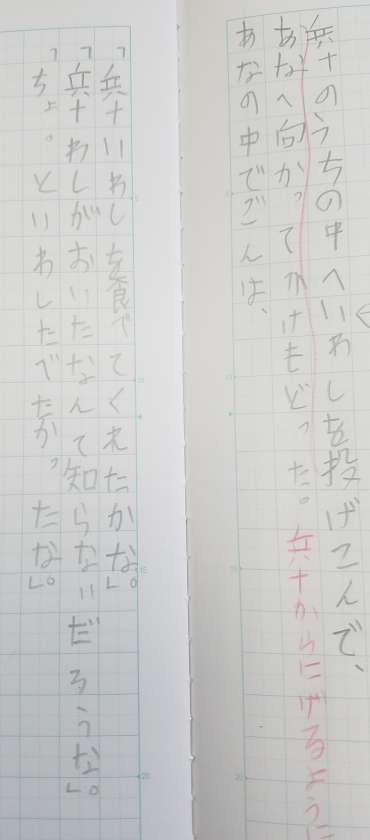 兵十のうちの中へいわしを投げこんで、
あなへ向かってかけもどった。兵十からにげるように
あなの中でごんは、
「兵十いわしを食べてくれたかな。」
「兵十わしがおいたなんて知らないだろうな。」
「ちょっといわしたべたかったな。」